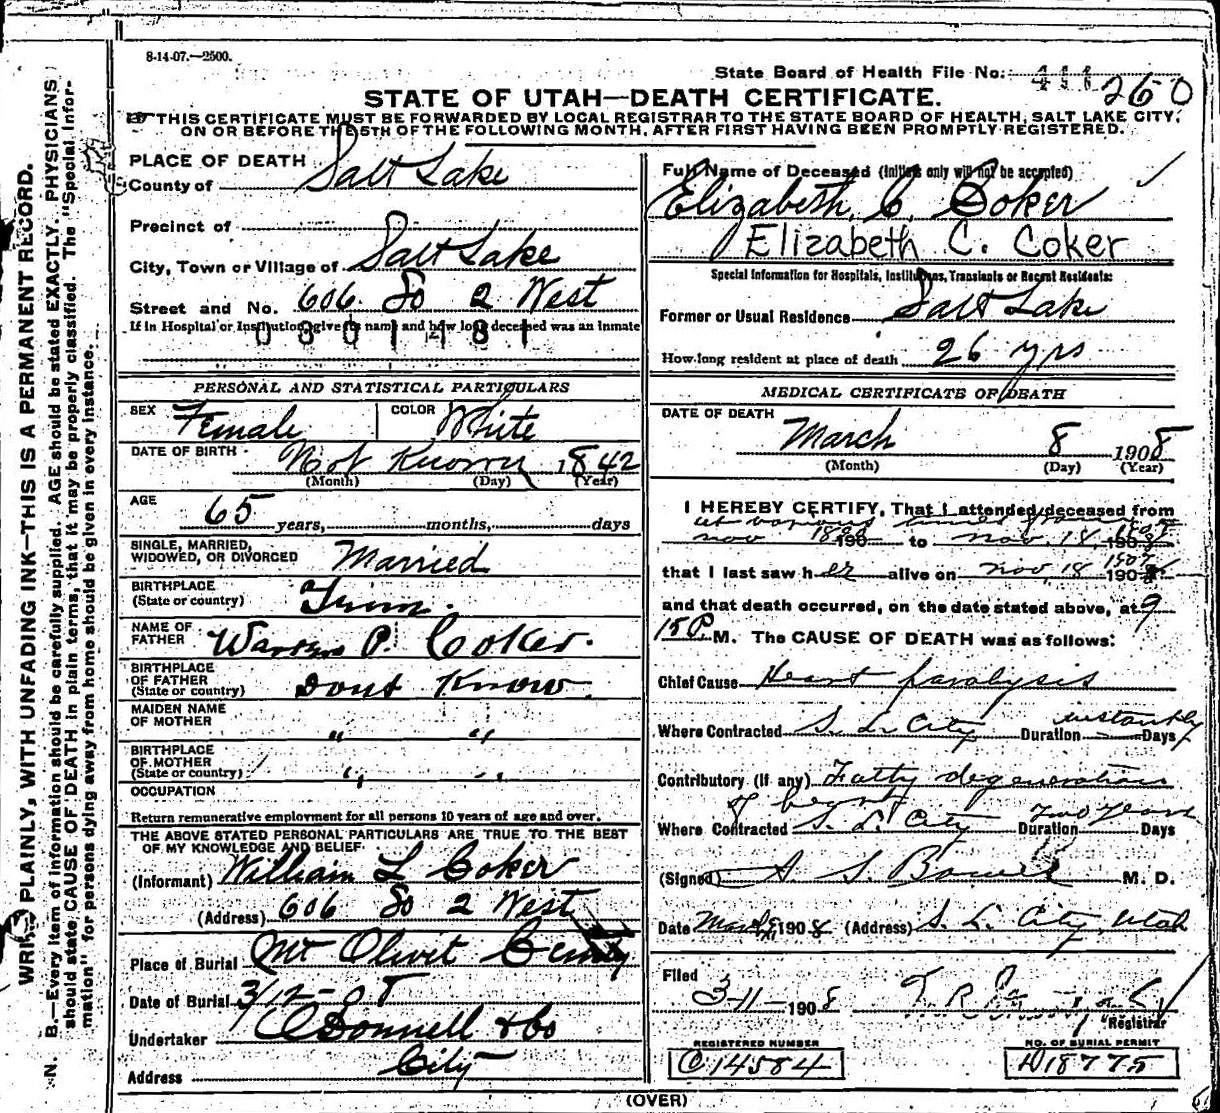 8-14-07.—2500.
State Board of Health File No: 260
STATE OF UTAH—DEATH CERTIFICATE.
THIS CERTIFICATE MUST BE FORWARDED BY LOCAL REGISTRAR TO THE STATE BOARD OF HEALTH, SALT LAKE CITY,
ON OR BEFORE THE 5TH OF THE FOLLOWING MONTH, AFTER FIRST HAVING BEEN PROMPTLY REGISTERED.
WRITE PLAINLY, WITH UNFADING INK—THIS IS A PERMANENT RECORD.
N. B.—Every item of information should be carefully supplied. AGE should be stated EXACTLY. PHYSICIANS
should state CAUSE OF DEATH in plain terms, that it may be properly classified. The "Special Infor-
mation" for persons dying away from home should be given in every instance.
PLACE OF DEATH
County of Salt Lake
Precinct of
City, Town or Village of Salt Lake
Street and No. 606 So 2 West
If in Hospital or Institution, give its name and how long deceased was an inmate
0801481
PERSONAL AND STATISTICAL PARTICULARS
SEX Female COLOR White
DATE OF BIRTH Not Known 1842
(Month) (Day) (Year)
AGE 65 years, months, days
SINGLE, MARRIED,
WIDOWED, OR DIVORCED Married
BIRTHPLACE
(State or country)
NAME OF
FATHER Warren P. Coker.
BIRTHPLACE
OF FATHER
(State or country) Dont Know.
MAIDEN NAME
OF MOTHER " "
BIRTHPLACE
OF MOTHER
(State or country) " "
OCCUPATION
Return remunerative employment for all persons 10 years of age and over.
THE ABOVE STATED PERSONAL PARTICULARS ARE TRUE TO THE BEST
OF MY KNOWLEDGE AND BELIEF
(Informant) William L Coker
(Address) 606 So 2 West
Place of Burial Mt Olivit
Date of Burial 3/12-08
Undertaker O'Donnell & Co
Address City
Full Name of Deceased (Initials only will not be accepted)
Elizabeth C. Coker
Elizabeth C. Coker
Special Information for Hospitals, Institutions, Transients or Recent Residents:
Former or Usual Residence Salt Lake
How long resident at place of death 26 yrs
MEDICAL CERTIFICATE OF DEATH
DATE OF DEATH
March 8 1908
(Month) (Day) (Year)
I HEREBY CERTIFY, That I attended deceased from
at various times from
nov 190 to nov. 18, 190
that I last saw her alive on nov. 18 1907
and that death occurred, on the date stated above, at 9
15 P. M. The CAUSE OF DEATH was as follows:
Chief Cause Heart paralysis
Where Contracted S. L. City Duration instantly Days
Contributory (if any) Fatty degeneration
of heart
Where Contracted S. L. City Duration two years Days
(Signed) A S. M. D.
Date 1908 (Address) S. L. City, Utah
Filed
3-11-1908
Registrar
REGISTERED NUMBER
C14584
NO. OF BURIAL PERMIT
D18775
(OVER)